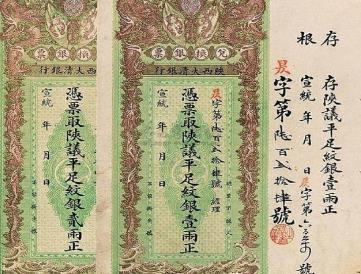 存根
存陝議平足紋銀壹兩正
宣統 年 月 日
昃字第陸百弍拾肆號
兌換銀票
陝西大清銀行
昃字第陸百弍拾肆號 經理
憑票取陝議平足紋銀壹兩正
宣統 年 月 日
兌換銀票
陝西大清銀行
憑票取陝議平足紋銀貳兩正
宣統 年 月 日